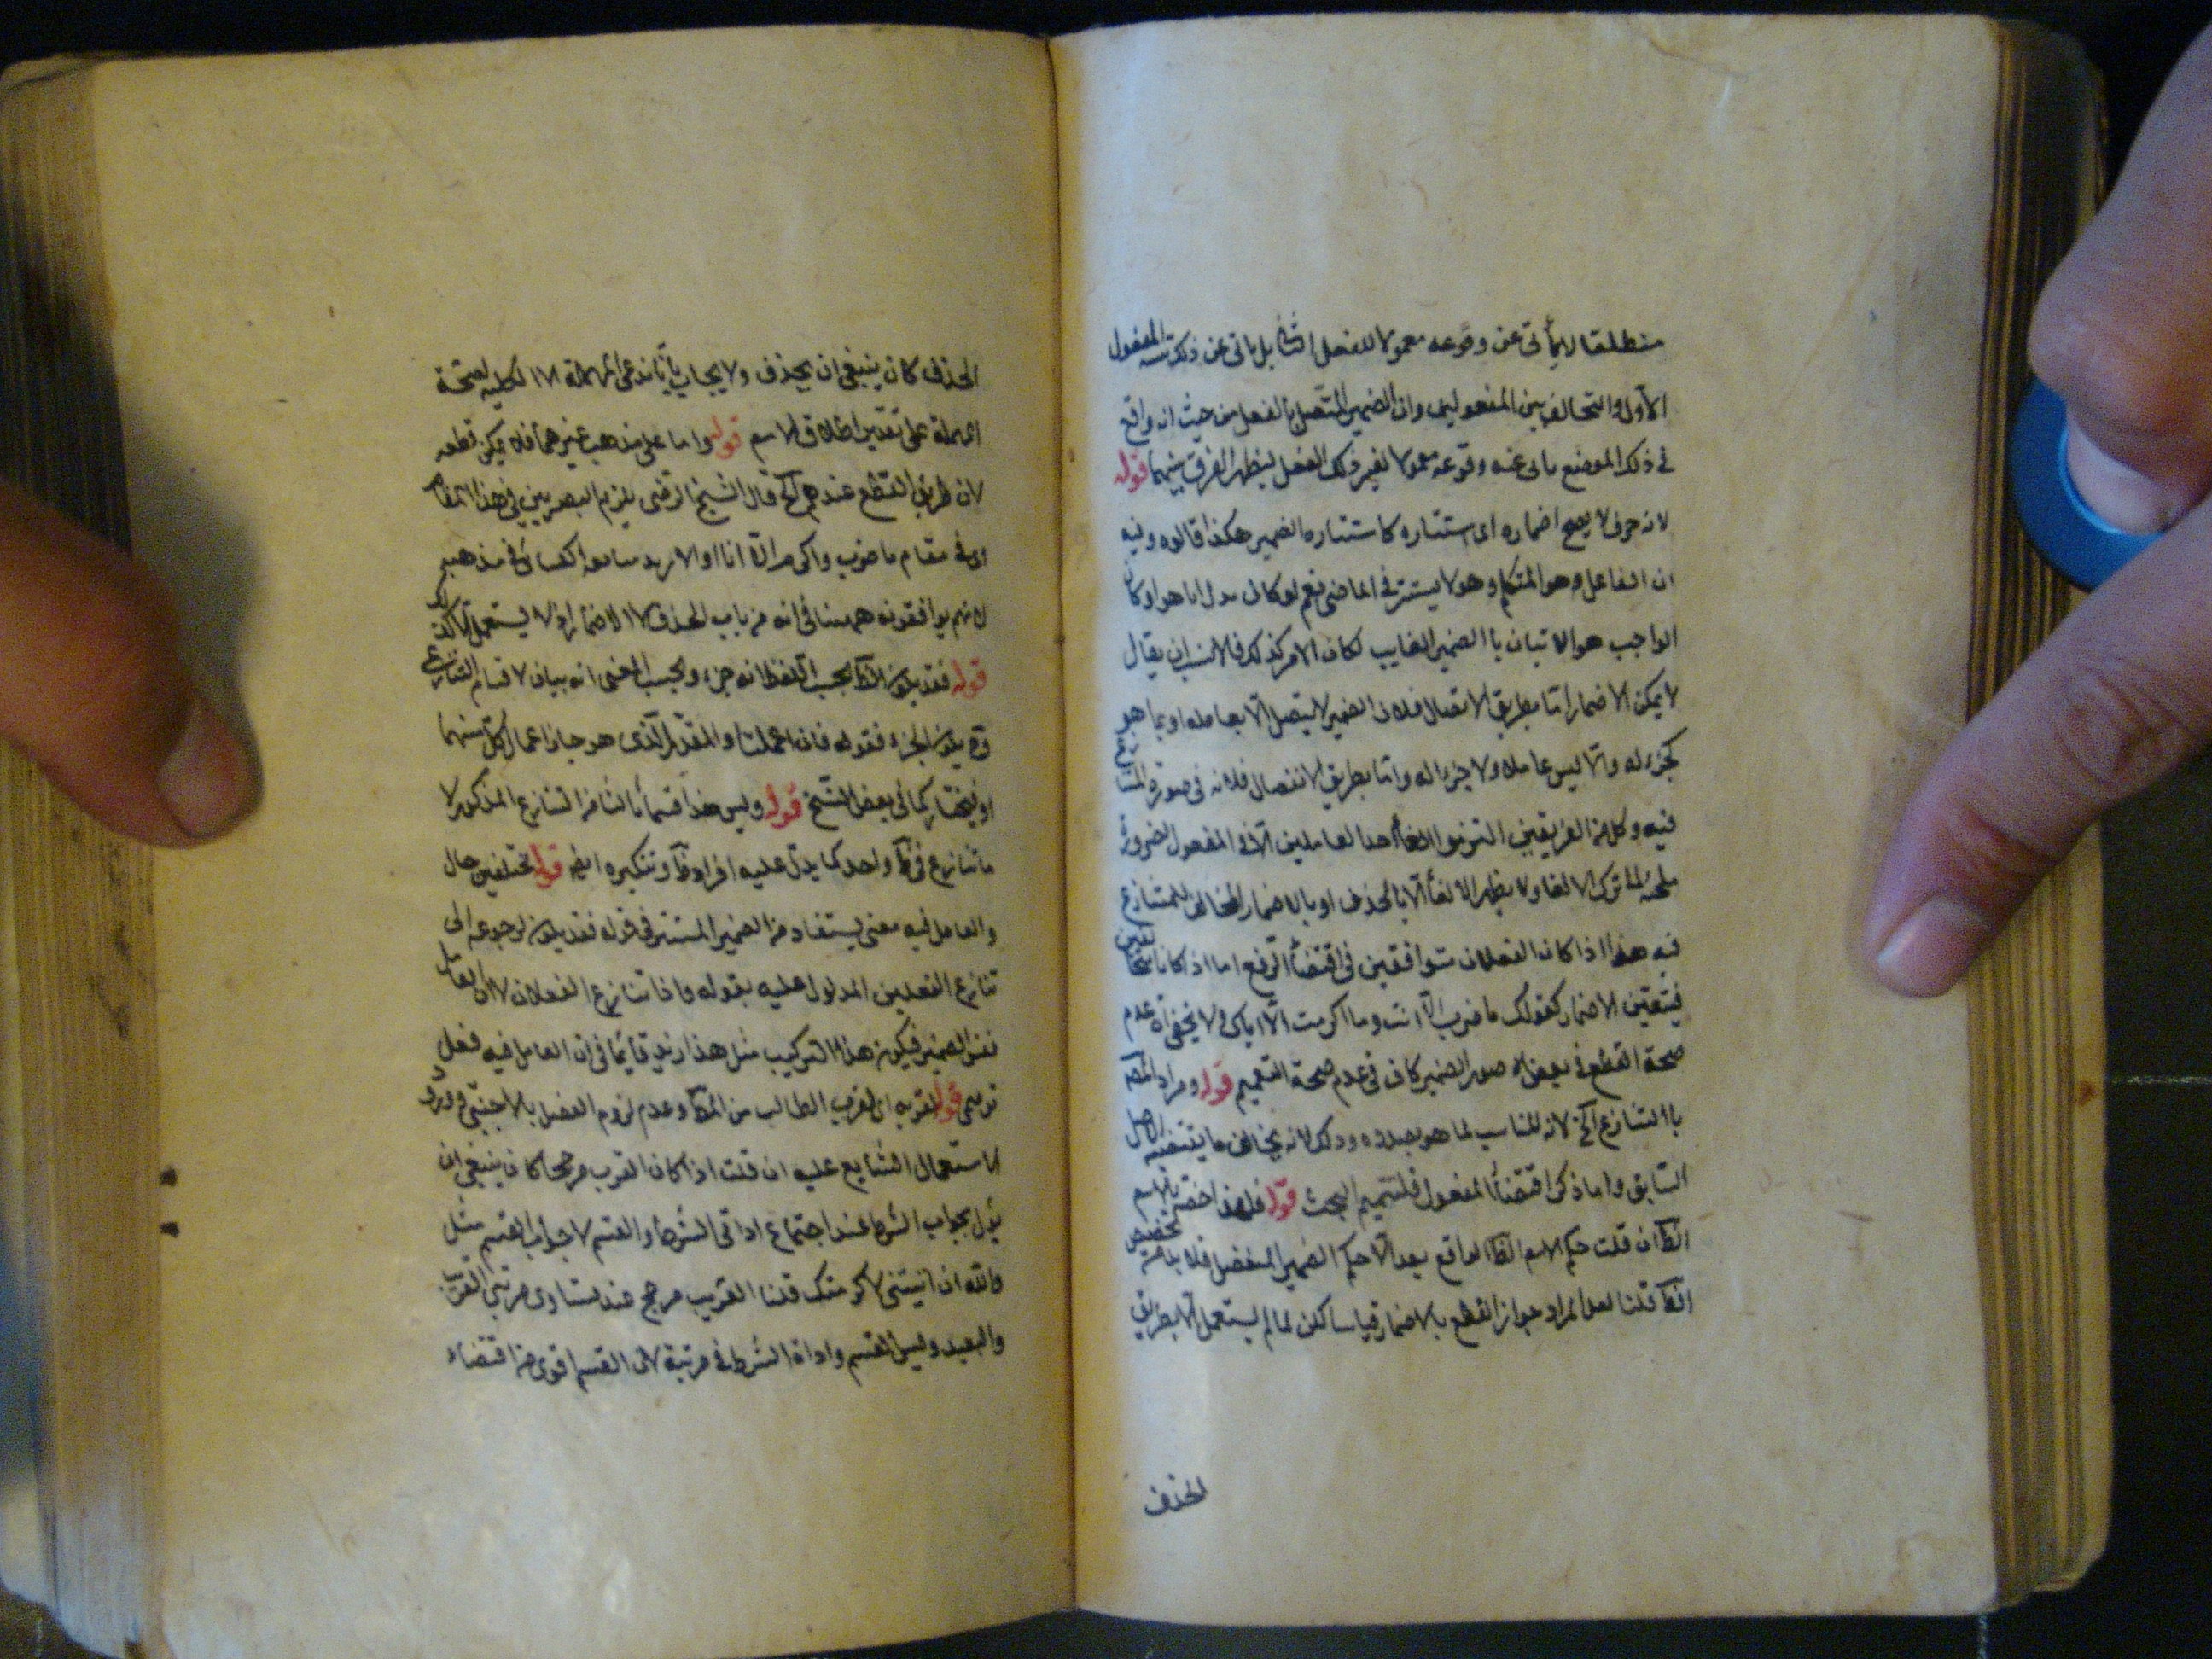 منطلقا لا يأتى عن وقوعه معمولا للفعل الثانى بل ياتى عن ذلك تثنية المفعول
الأول والتخالف بين المفعولين وان الضمير المتصل بالفعل من حيث انه واقع
فى ذلك الموضع يابى عنه وقوعه معمولا لغير ذلك الفعل ليظهر الفرق بينهما قوله
لانه حرف لا يصح اضماره اى استتاره كاستتاره الضمير هكذا قالوه وفيه
ان الفاعل وهو المتكلم وهو لا يستتر فى الماضى نعم لو كان بدل انا هو او كان
الواجب هو الاتيان با الضمير الغايب لكان الامر كذلك فالانسب ان يقال
لا يمكن الاضمار اما بطريق الاتصال فلان الضمير لا يتصل الا بعامله او بما هو
كجزء له والا ليس عامله ولا جزءا له واما بطريق الانفصال فلانه فى صورة المتنازع
فيه وكل من الفريقين التزموا الغاء احد العاملين الا فى المفعول لضرورة
ترك الالغا ولا يظهر الالغأ الا بالحذف او بالاضمار المخالف للمتنازع
فيه هذا اذا كان الفعلان متوافقين فى اقتضأ الرفع اما اذا كانا متخالفين
فيتعين الاضمار كقولك ما ضرب الا انت وما اكرمت الا اياك ولا يخفى ان عدم
صحة القطع فى بعض صور الضمير كاف فى عدم صحة التعميم قوله ومراد المص
با التنازع الخ لانه المناسب لما هو بصدده وذلك لانه يخالف ما يقتضيه الاصل
السابق واما ذكر اقتضأ المفعول فلتتميم البحث قوله فلهذا اختص بالاسم
الظ ان قلت حكم الاسم الظ الواقع بعد الا حكم الضمير المنفصل فلا تخصيص
الظ قلنا لعل المراد جواز القطع بالاضمار قياسا لكن لما لم يستعمل الا بطريق
الحذف
الحذف كان ينبغى ان يحذف ولا يجاب بأنا ندعى المهملة لا الكلية لصحة
المهملة على تقدير اطلاق الاسم قوله واما على مذهب غيرهما فلا يمكن قطعه
لان طريق القطع عندهم الخ قال الشيخ الرضى يلزم البصريين فى هذا المقام
اى فى مقام ما ضرب واكرم الا انا او الا زيد متابعة الكسائى فى مذهبه
لانهم يوافقونه ههنا فى انه من باب الحذف لا الاضمار اذ لا يستعمل الا كذلك
قوله فقد يكون الظ بحسب اللفظ انه جزء وبحسب المعنى انه بيان لاقسام التنازع
وح يكون الجزء فقوله فان اعملت او المقدر الذى هو جاز اعمال كل منهما
او يختار كما فى بعض النسخ قوله وليس هذا قسما ثالثا من التنازع المذكور لا
ما تنازع فى ظ واحد كما يدل عليه افراد ظ وتنكيره ايض قوله مختلفين حال
والعامل فيه معنى يستفاد من الضمير المستتر فى قوله فقد يكون لرجوعه الى
تنازع الفعلين المدلول عليه بقوله واذا تنازع الفعلان لا ان العامل
نفس الضمير فيكون هذا التركيب مثل هذا زيد قائما فى ان العامل فيه فعل
قوله لقربه اى لقرب الطالب من المط وعدم لزوم الفصل بالاجنبى وورود
الاستعمال الشايع عليه ان قلت اذا كان القرب مرجحا كان ينبغى ان
يؤل بجواب الشرط عند اجتماع اداتى الشرط والقسم لا جواب القسم مثل
والله ان اتيتنى لاكرمتك قلنا القريب مرجح عند تساوى مرتبتى القريب
والبعيد وليس القسم واداة الشرط فى مرتبة لان القسم اقوى من اقتضاء